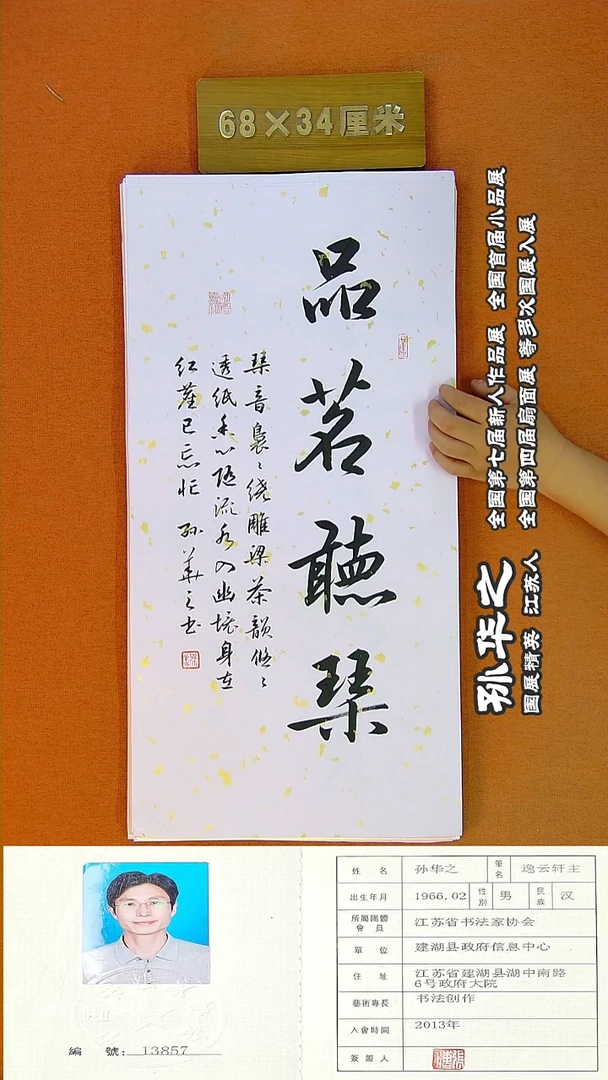 68×34厘米
品茗聽琹
琹音裊〻绕雕梁茶韻悠〻
透纸来心随流水入幽境身在
红塵已忘忙 孙華之书
孙华之
国展精英 江苏人
全国第七届新人作品展 全国首届小品展
全国第四届扇面展 等多次国展入展
姓名 孙华之 筆名 逸云轩主
出生年月 1966.02 性别 男 民族 汉
所屬團體會員 江苏省书法家协会
單位 建湖县政府信息中心
住址 江苏省建湖县湖中南路
6号政府大院
藝術專長 书法创作
入會時間 2013年
簽證人
編號: 13857